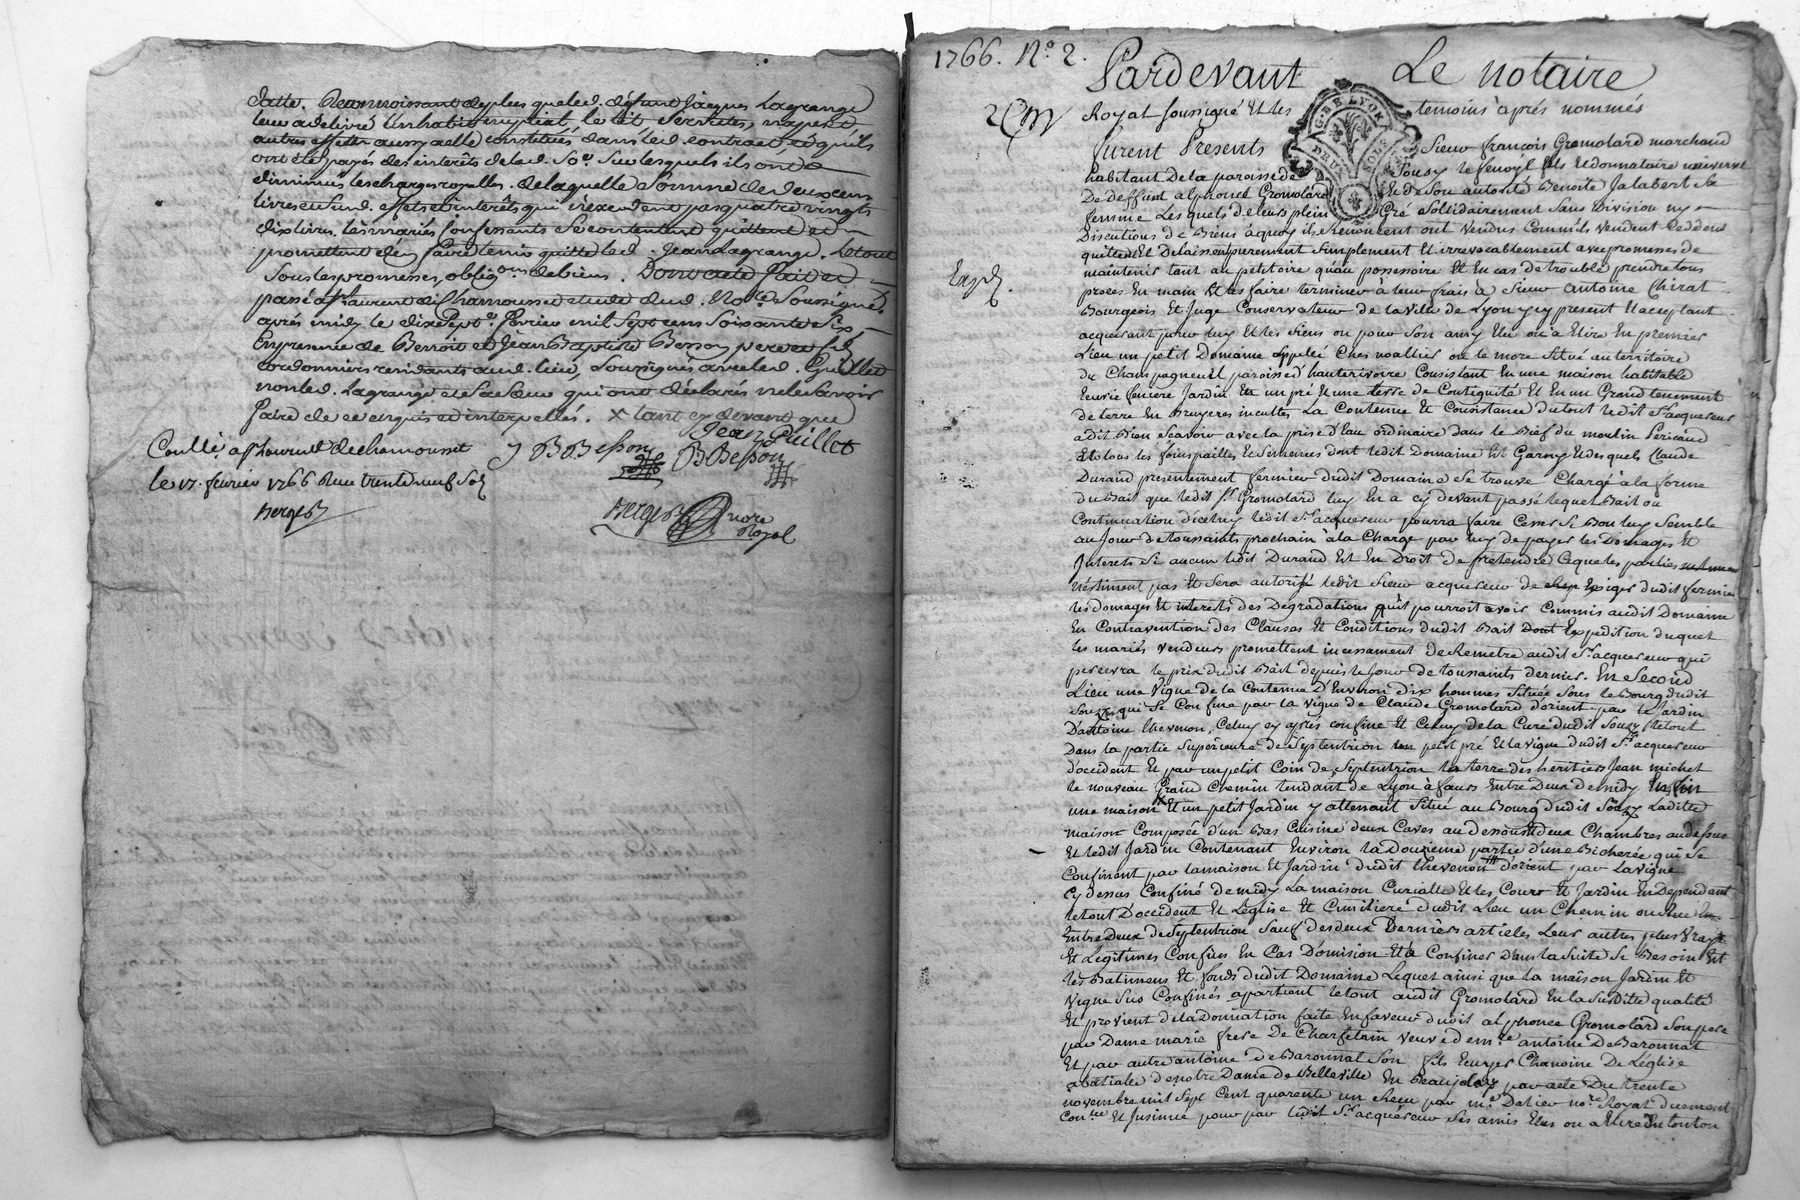 datte. Reconnoissant deplus queled. défunt Jacques Lagrange
leur a delivré l'inhabit nuptial le lit serviettes, napes et
autres effets aussy a elle constitués dans led. contract, et quils
ont été payés des interêts de lad. So.e sur lesquels ils ont
diminués les charges royalles. de laquelle somme de deux cens
livres en fond. effets et interêts qui n'excedent pas quatre vingts
dix livres. les mariés confessants se contentent quittent et
promettent d'en faire tenir quitte led. Jean Lagrange. le tout
sous les promesses, oblig.ons de biens. Dont acte fait et
passé a St Laurent de Chamousset etude dud. No.re Soussigné
après midy le dix sept.e fevrier mil sept cens soixante six
en presence de Benoit et Jean Baptiste Besson pere et fils
cordonniers residants aud. lieu, soussignés avec led. Guillet
non led. Lagrange et sa sœur qui ont déclarés ne le savoir
faire de ce enquis et interpellés. x tant cy devant que
Jean Guillet
Conllé, a St Laurent de chamousset J B Besson B Besson
le 17. fevrier 1766 Reçu trente neuf sols
Berger Berger No.re Royal
1766. N.o 2.
Pardevant Le notaire
Royal soussigné Et les temoins après nommés
furent Presents Sieur françois Gromolard marchand
habitant De la paroisse de Sousy le fils Et donnataire universel
De deffunt alphonce Gromolard Et de son autorité Benoite Jalabert sa
femme Lesquels de leurs plein Gré Sollidairement Sans Division ny
Discutions de Biens à quoy ils Renoncent ont Vendus Comme ils vendent Ceddent
quittent Et Delaissent purement Simplement Et irrevocablement avec promesses de
maintenir tant au petitoire qu'au possessoire Et En cas de trouble prendre tous
procès En main Et les faire terminer à leur frais à Sieur antoine Chirat
Exp.é.
Bourgeois Et Juge Conservateur de la Ville de Lyon y cy present Et acceptant
acquerant pour luy Et les Siens ou pour son amy Elu ou à Elire En premier
Lieu un petit Domaine appellé Ches noallier ou le more Situé au territoire
du Champagneuil paroisse d'hauterivoire Consistant En une maison habitable
Ecurie feniere Jardin En un pré Et une terre de Contiguité Et En un Grand tenement
de terre En Bruyeres incultes La Contenue Et Consistance du tout ledit S.r acquereur
a dit Bien Scavoir avec la prise d'eau ordinaire dans le Bief du moulin Pericaud
Et tous les foins pailles Et Semences dont ledit Domaine Est Garny Et desquels Claude
Durand presentement fermier dudit Domaine se trouve Chargé à la forme
du Bail que ledit S.r Gromolard luy En a cy devant passé lequel Bail ou
Continuation d'iceluy ledit S.r acquereur pourra faire Cesser Si Bon luy Semble
au Jour de toussaints prochain à la Charge par luy de payer les Domages Et
Interets Si aucun ledit Durand Est En Droit de pretendre Ce que les parties
n'estiment pas Et Sera autorisé ledit Sieur acquereur de Exiger dudit fermier
les domages Et interets des Degradations qu'il pourroit avoir Commis audit Domaine
En Contravention des Clauses Et Conditions dudit Bail Dont Expedition duquel
les mariés vendeurs promettent incessament de Remettre audit S.r acquereur qui
percevra le prix dudit Bail depuis le Jour de toussaints dernier. En Second
Lieu une Vigne de la Contenue D'Environ dix hommes Située Sous le Bourg dudit
Souzy qui Se Confine par la vigne de Claude Gromolard d'orient par le Jardin
D'antoine thevenon, Celuy cy après confiné Et Celuy de la Cure dudit Souzy le tout
Dans la partie Superieure de Septentrion un petit pré Et la vigne dudit S.r acquereur
d'occident Et par un petit Coin de Septentrion la terre des heritiers Jean michel
le nouveau Grand Chemin tendant de Lyon à feurs Entre Deux de midy Enfin
une maison Et un petit Jardin y attenant Situé au Bourg dudit Souzy Laditte
maison Composée d'un Bas Cuisine deux Caves au dessous deux Chambres au dessus
Et ledit Jardin Contenant Environ la Douzieme partie d'une Bicherée qui Se
Confinent par la maison Et Jardin dudit thevenon d'orient par La vigne
Cy dessus Confiné de midy La maison Curialle Et les Cour Et Jardin En Dependant
le tout D'occident Et L'eglise Et Cimitiere dudit Lieu un Chemin ou Rue
Entre Deux de Septentrion Sauf des deux Derniers articles Leur autres plus Vrays
Et Legitimes Confins En Cas D'omission Et à Confiner Dans la Suite Si Besoin Est
les Batimens Et fonds dudit Domaine Lequel ainsi que la maison Jardin Et
Vigne Sus Confinés apartient le tout audit Gromolard En la Susditte qualité
Et provient de la Donnation faite En faveur dudit alphonce Gromolard Son pere
par Dame marie frere De Charfetain veuve de m.re antoine De Baronnat
Et par autre antoine de Baronnat Son fils Ecuyer Chanoine De L'eglise
abatiale de notre Dame de Belleville En Beaujolois par acte Du trente
novembre mil Sept Cent quarente un Reçu par m.e Dalier no.re Royal Duement
Con.lle Et Insinué pour par ledit S.r acquereur Ses amis Elus ou a Elire En tout ou